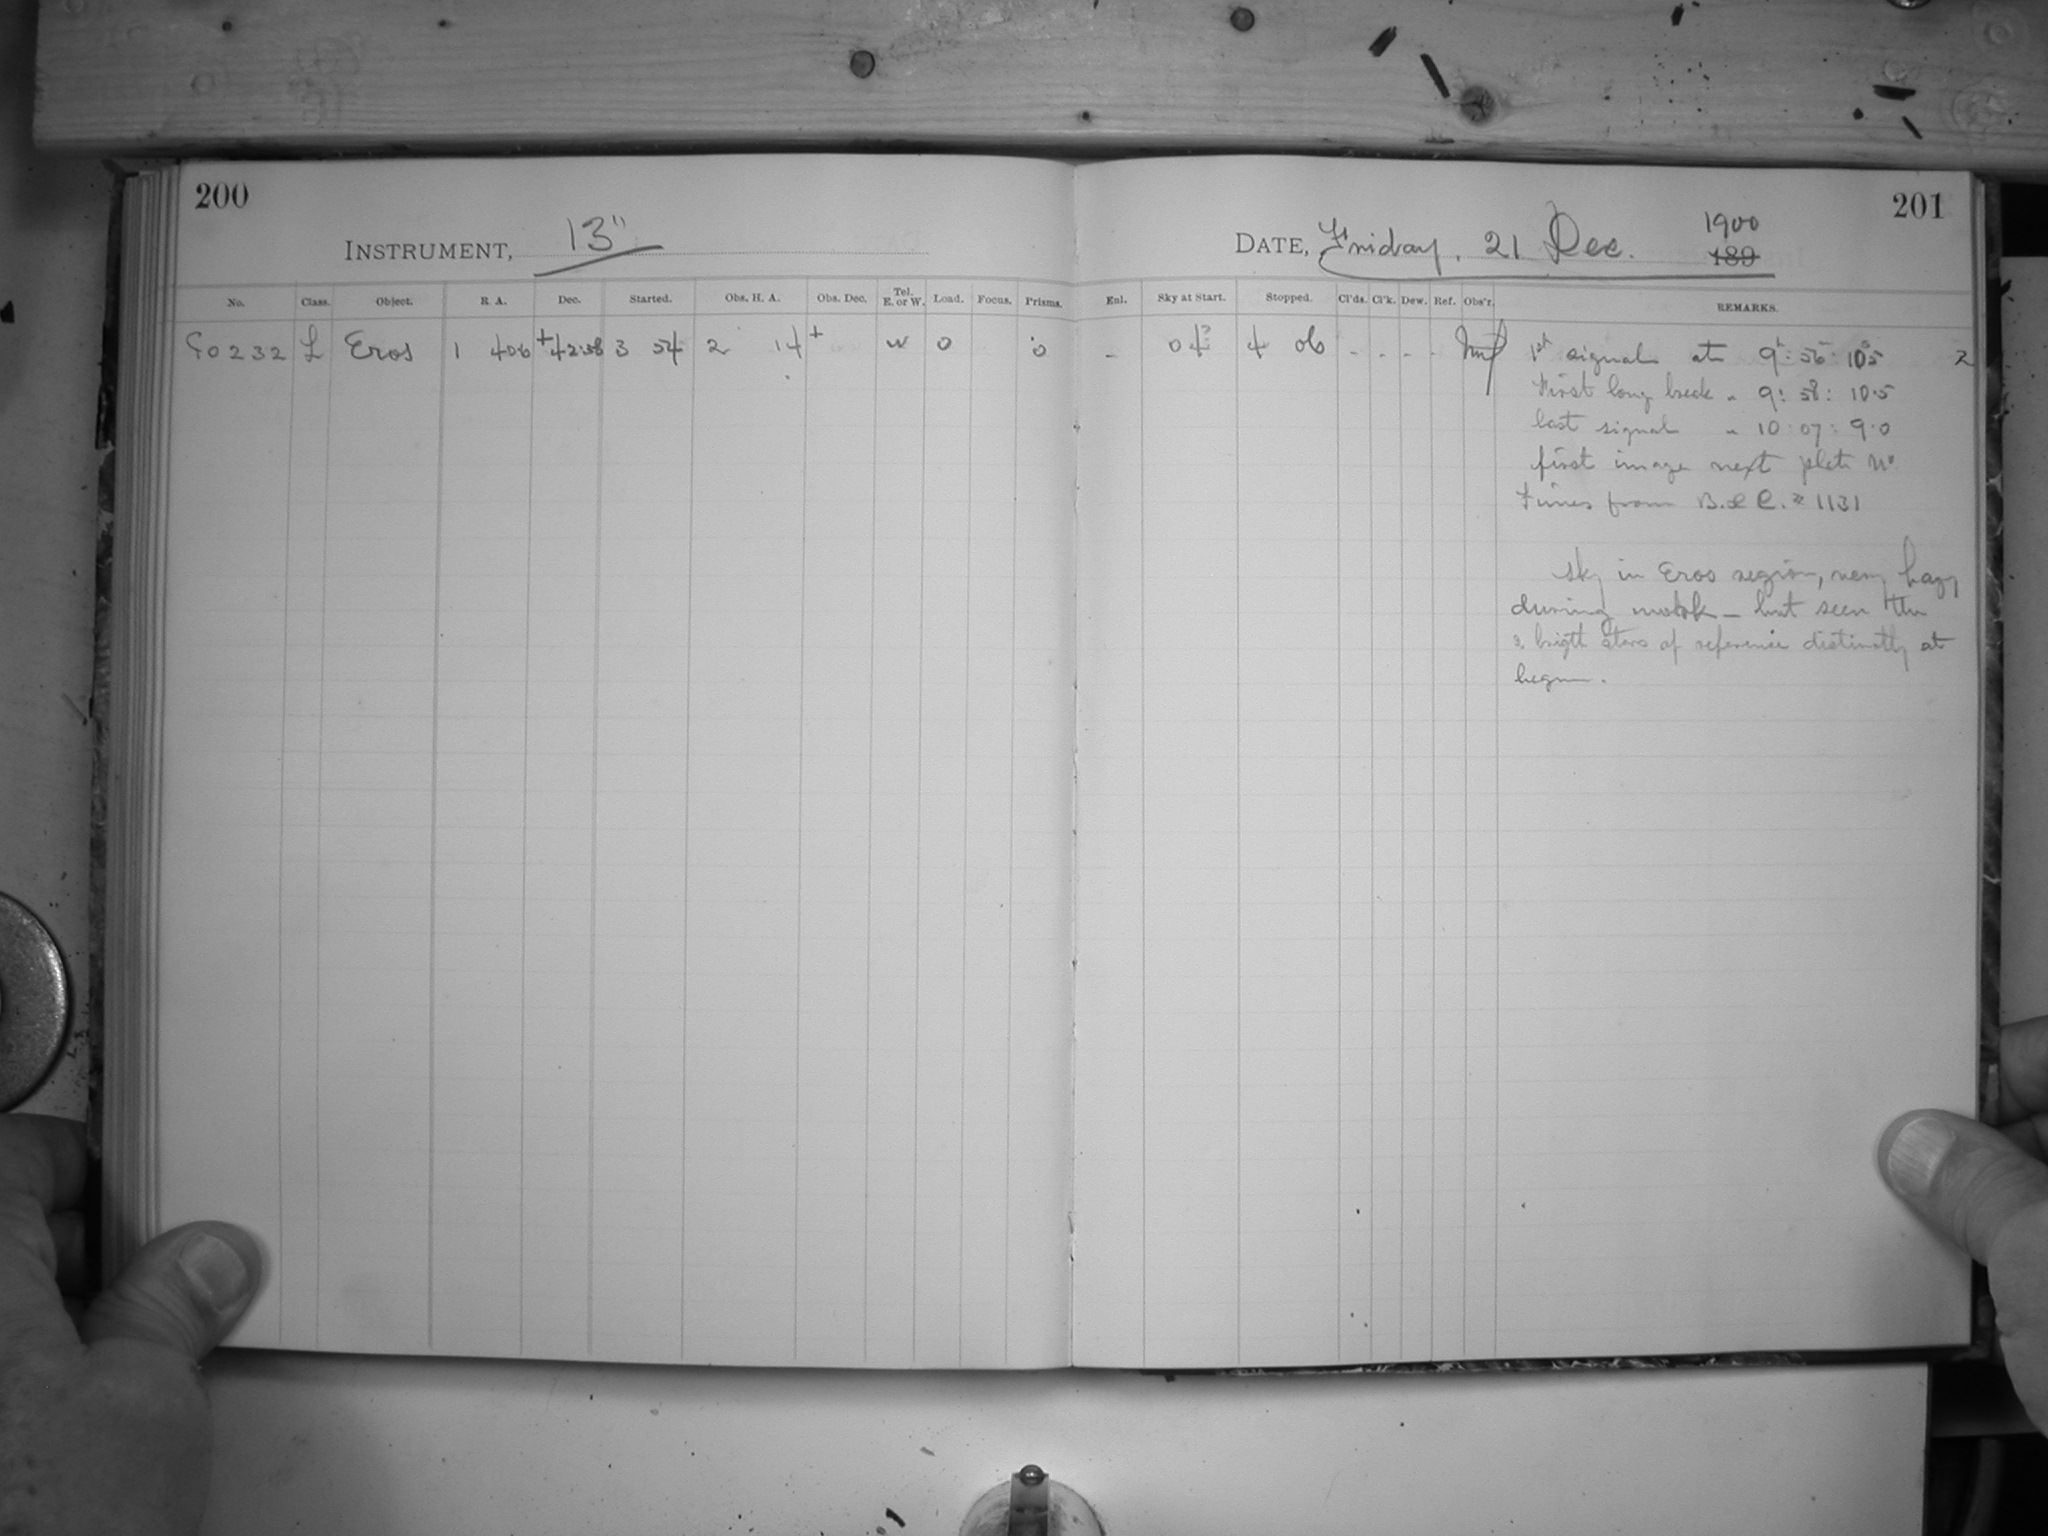 200
201
INSTRUMENT, 13"
DATE, Friday, 21 Dec. 1900 189
No. Class. Object. R. A. Dec. Started. Obs. H. A. Obs. Dec. Tel. E. or W. Load. Focus. Prisms. Enl. Sky at Start. Stopped. Cl'ds. Cl'k. Dew. Ref. Obs'r. REMARKS.
90232 L Eros 1 40.6 +42.38 3 54 2 14 + W 0 0 - 04? 4 06 - - - - 1st signal at 9h: 56: 10.5 2
First long break " 9: 58: 10.5
last signal " 10: 07: 9.0
first image next plate No
Times from B. & C. # 1131
Sky in Eros region, very hazy
during work - but seen the
3 brigth stars of reference distinctly at
begin.